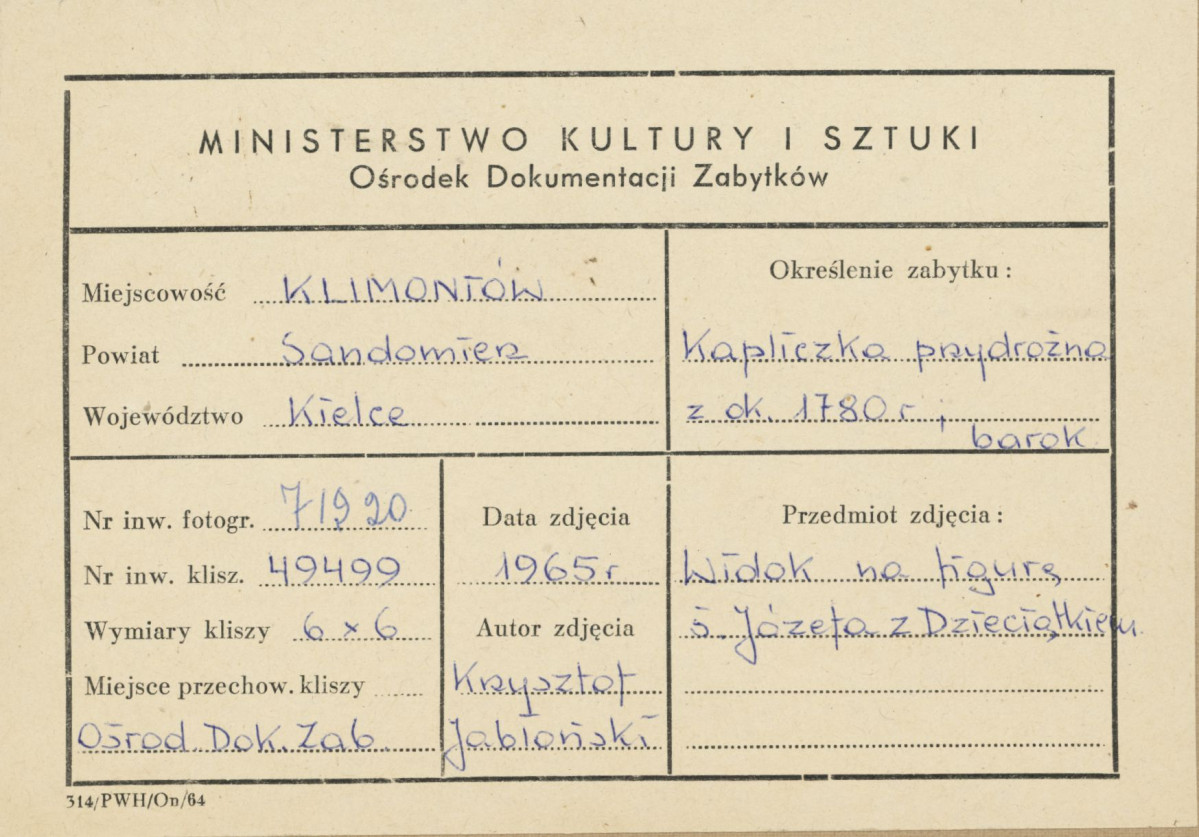 MINISTERSTWO KULTURY I SZTUKI
Ośrodek Dokumentacji Zabytków
Miejscowość KLIMONTÓW
Powiat Sandomierz
Województwo Kielce
Określenie zabytku:
Kapliczka przydrożna
z ok. 1780 r,
barok
Nr inw. fotogr. 71920
Nr inw. klisz. 49499
Wymiary kliszy 6 x 6
Miejsce przechow. kliszy
Ośrod. Dok. Zab.
Data zdjęcia
1965 r
Autor zdjęcia
Krzysztof
Jabłoński
Przedmiot zdjęcia:
Widok na figurę
ś. Józefa z Dzieciątkiem
314/PWH/On/64